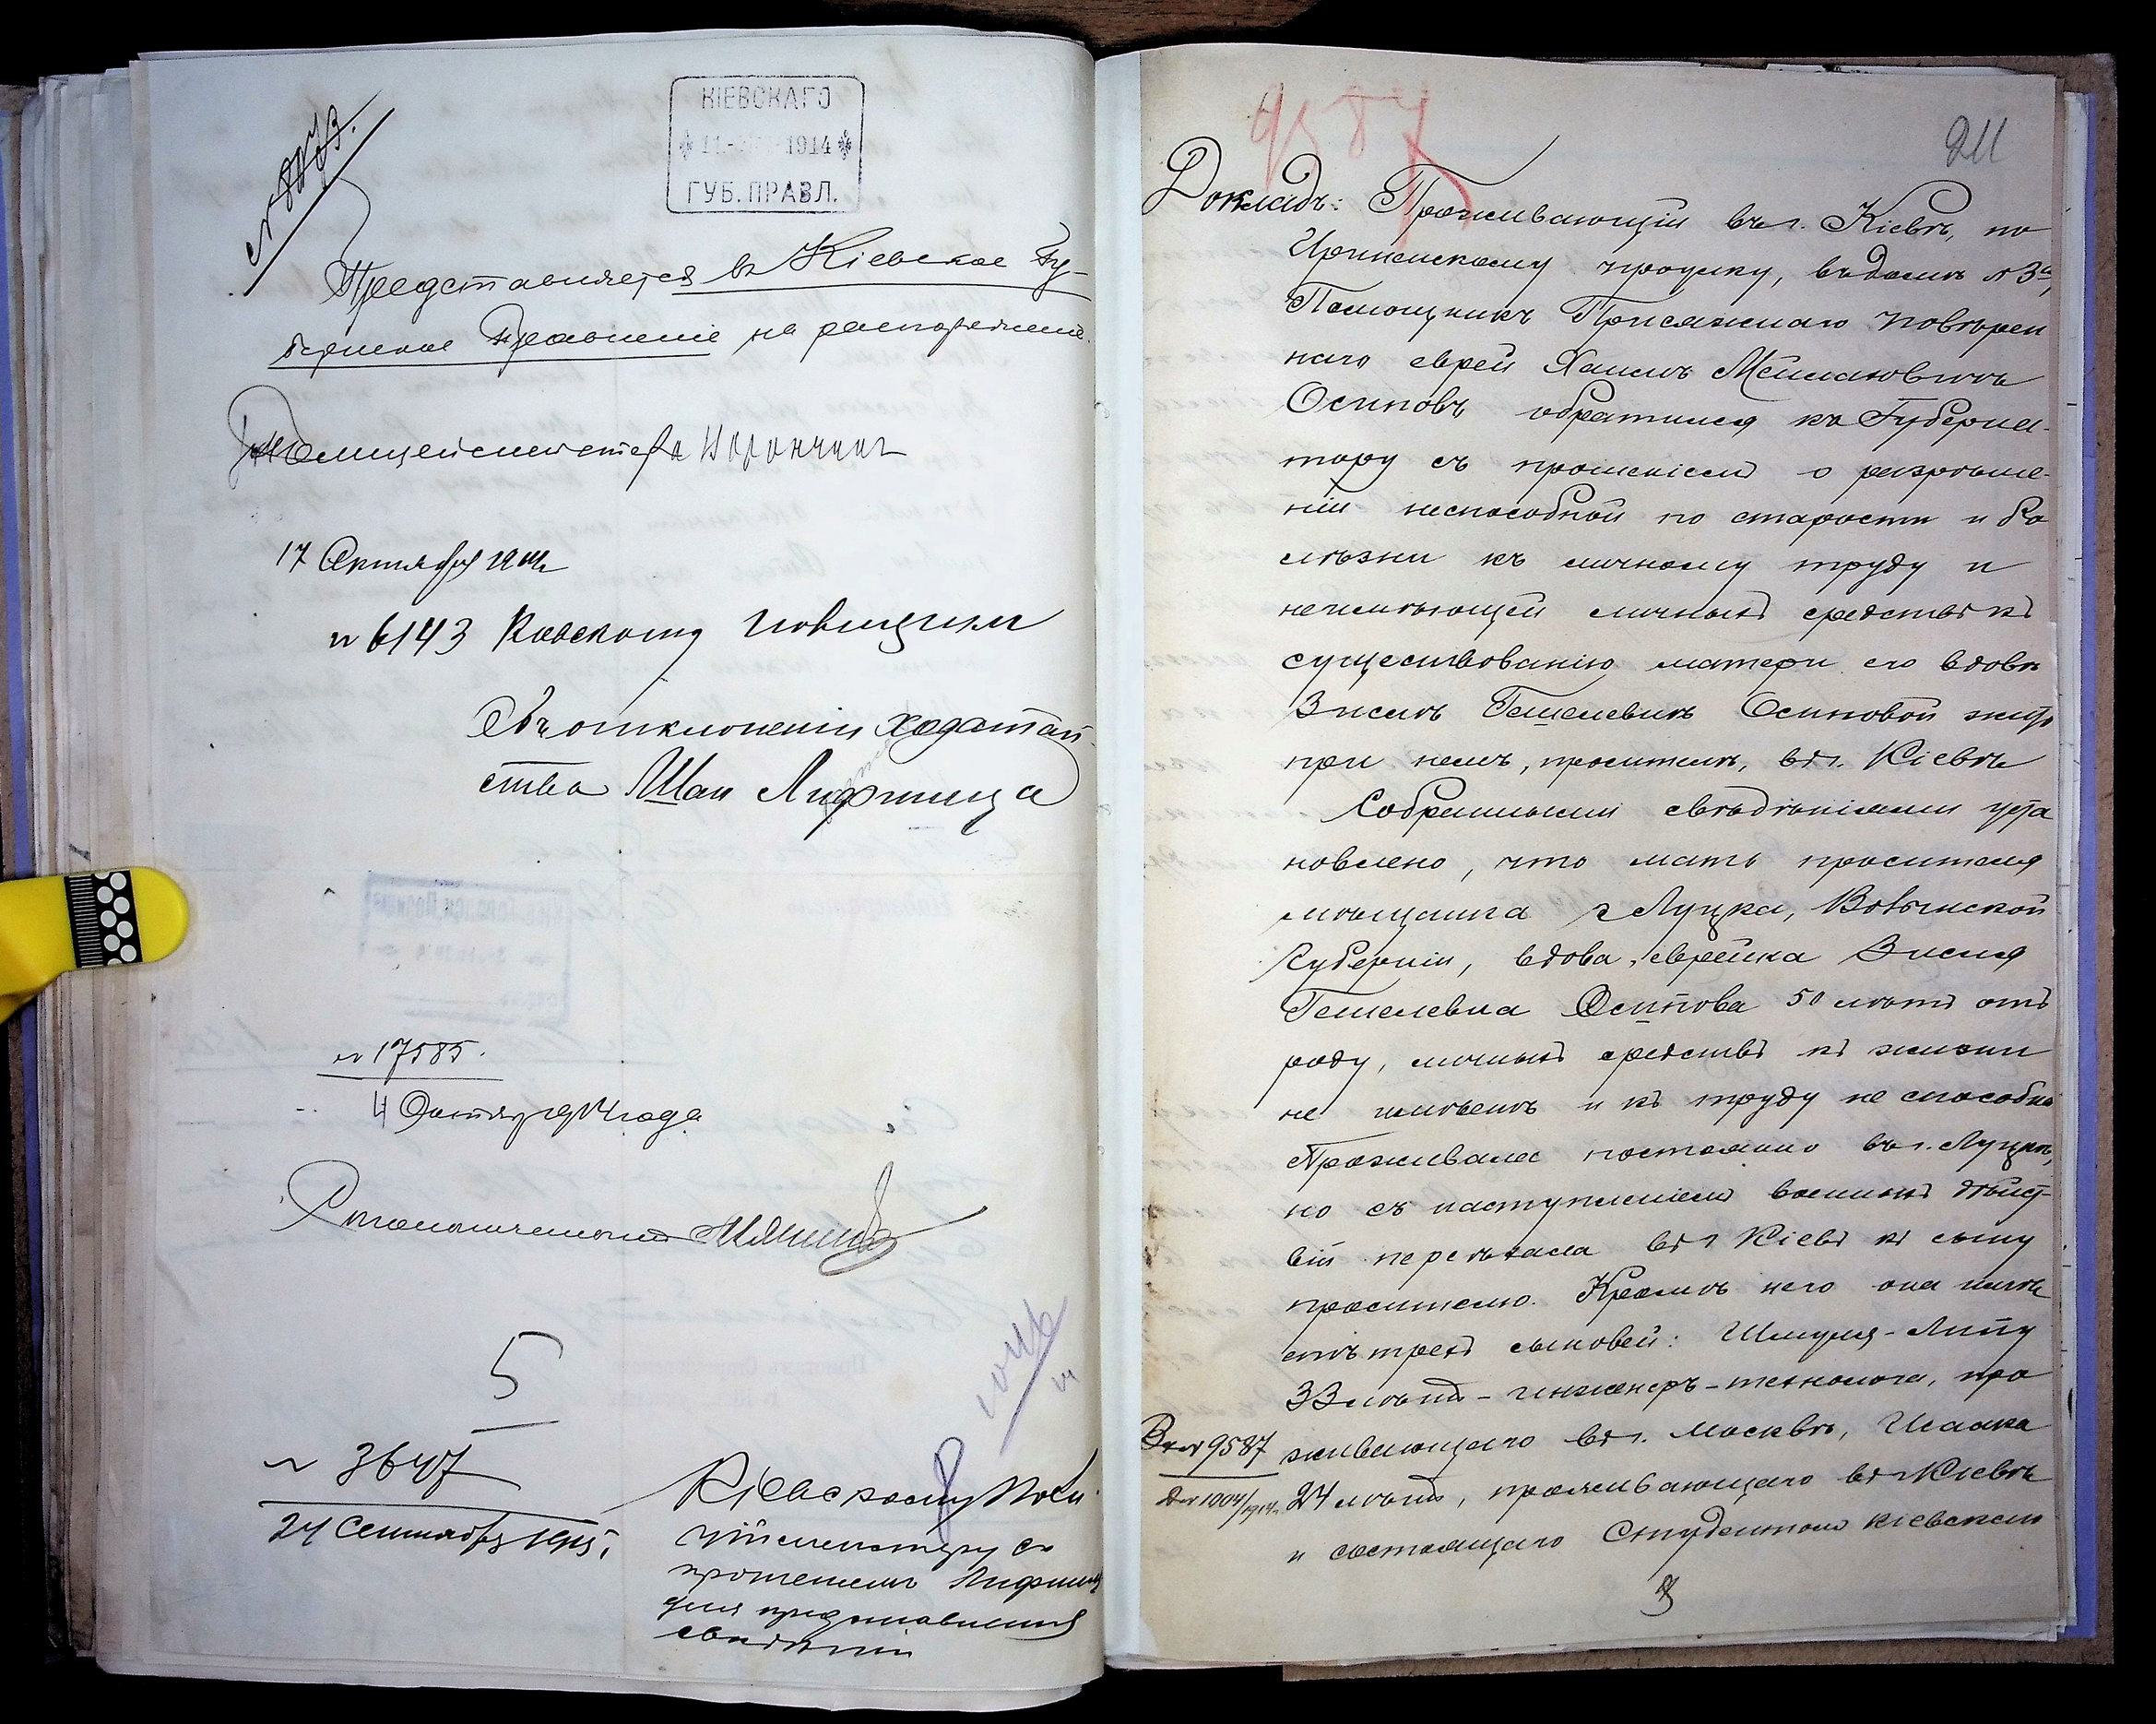 КІЕВСКАГО
1914
ГУБ. ПРАВЛ.
Представляется въ Кіевское Гу-
бернское Правленіе на распоряженіе.
Полицеймейстера
17 Октября 1914
№ 6143 Кіевскому
Объ отклоненіи ходатай-
ства Шаи Лифшица
№ 17585.
4 Октяб 1914 года
5
№ 3647
24 Сентября 1915
Кіевскому Поли
циймейстеру съ
прошеніемъ Лифшица
для представленія
свѣдѣній
9587
211
Докладъ: Проживающій въ г. Кіевѣ, по
Ирининскому переулку, въ домѣ № 3а,
Помощникъ Присяжнаго повѣрен
наго еврей Хаимъ Осиповъ обратился къ Губерна-
тору съ прошеніемъ о разрѣше-
ніи неспособной по старости и бо
лѣзни къ личному труду и
неимѣющей личныхъ средствъ къ
существованію матери его вдовѣ
Зислѣ Гешелевнѣ Осиповой жить
при немъ, просителѣ, въ г. Кіевѣ
Собранными свѣдѣніями уста
новлено, что мать просителя
мѣщанка г Луцка, Волынской
губерніи, вдова, еврейка Зисля
Гешелевна Осипова 50 лѣтъ отъ
роду, личныхъ средствъ къ жизни
не имѣетъ и къ труду не способна
Проживала постоянно въ г. Луцкѣ,
но съ наступленіемъ военныхъ дѣйст-
вій переѣхала въ г Кіевъ къ сыну
просителю. Кромѣ него она имѣ
етъ трехъ сыновей: Шмуля-Липу
33 лѣтъ - инженеръ-технолога, про
живающаго въ г. Москвѣ, Исаака
24 лѣтъ, проживающаго въ г Кіевѣ
и состоящаго Студентомъ Кіевскаго
Вх № 9587
Д № 1004/1914 г.